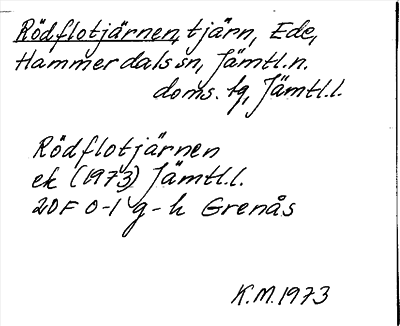 Rödflotjärnen, tjärn, Ede,
Hammerdals sn, Jämtl.n.
doms. tg, Jämtl.l.
Rödflotjärnen
ek (1973) Jämtl.l.
20F 0-1 g-h Grenås
K.M. 1973